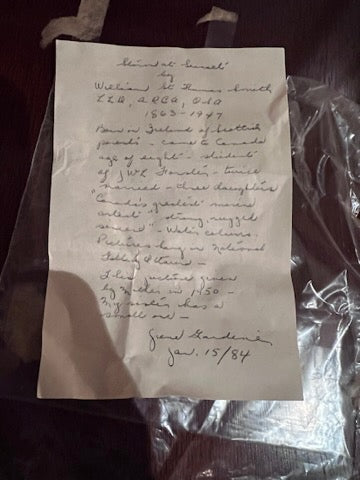 Storm at Sunset
by
William St Thomas Smith
A R C A, O S A
1863-1947
Born in Ireland of Scottish
parents - came to Canada
age of eight - student
of J W L Forster - twice
married - three daughters
"Canada's greatest marine
artist" "strong, rugged
" - Water colours.
Pictures hang in National
Ottawa -
This picture given
by Mother in 1950 -
My sister has a
small one -
Irene
Jan. 15/84